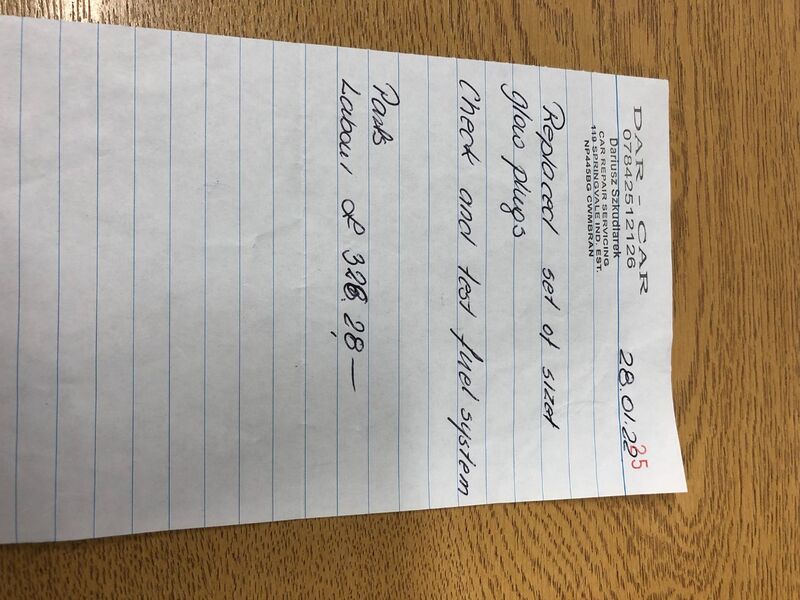 DAR - CAR
07842512126
Dariusz Szkudlarek
CAR REPAIR SERVICING
119 SPRINGVALE IND. EST.
NP445BG CWMBRAN
28.01.22
25
Replaced set of sizet
glow plugs
Check and test fuel system
Parts
Labour £ 328,28,—